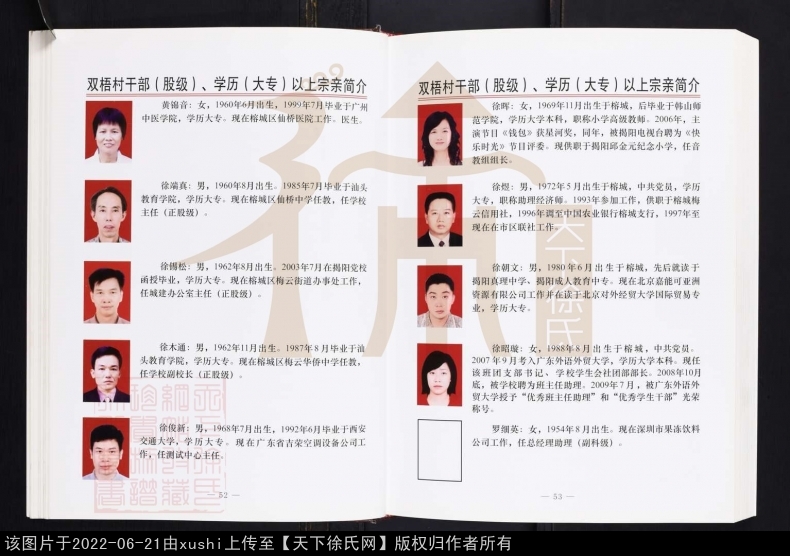 双梧村干部（股级）、学历（大专）以上宗亲简介
黄锦音：女，1960年6月出生，1999年7月毕业于广州
中医学院，学历大专。现在榕城区仙桥医院工作。医生。
徐端真：男，1960年8月出生。1985年7月毕业于汕头
教育学院，学历大专。现在榕城区仙桥中学任教，任学校
主任（正股级）。
徐锡松：男，1962年8月出生。2003年7月在揭阳党校
函授毕业，学历大专。现在榕城区梅云街道办事处工作，
任城建办公室主任（正股级）。
徐木通：男，1962年11月出生。1987年8月毕业于汕
头教育学院，学历大专。现在榕城区梅云华侨中学任教，
任学校副校长（正股级）。
徐俊新：男，1968年7月出生，1992年6月毕业于西安
交通大学，学历大专。现在广东省吉荣空调设备公司工
作，任测试中心主任。
— 52 —
双梧村干部（股级）、学历（大专）以上宗亲简介
徐晖：女，1969年11月出生于榕城，后毕业于韩山师
范学院，学历大学本科，职称小学高级教师。2006年，主
演节目《钱包》获星河奖，同年，被揭阳电视台聘为《快
乐时光》节目评委。现供职于揭阳邱金元纪念小学，任音
教组组长。
徐煜：男，1972年5月出生于榕城，中共党员，学历
大专，职称助理经济师。1993年参加工作，供职于榕城梅
云信用社，1996年调至中国农业银行榕城支行，1997年至
现在在市区联社工作。
徐朝文：男，1980年6月出生于榕城，先后就读于
揭阳真理中学、揭阳成人教育中专。现在北京嘉能可亚洲
资源有限公司工作并在读于北京对外经贸大学国际贸易专
业，学历大专。
徐昭璇：女，1988年8月出生于榕城，中共党员。
2007年9月考入广东外语外贸大学，学历大学本科。现任
该班团支部书记、学校学生会社团部部长。2008年10月
底，被学校聘为班主任助理。2009年7月，被广东外语外
贸大学授予“优秀班主任助理”和“优秀学生干部”光荣
称号。
罗细英：女，1954年8月出生。现在深圳市果冻饮料
公司工作，任总经理助理（副科级）。
— 53 —
天下徐氏
该图片于2022-06-21由xushi上传至【天下徐氏网】版权归作者所有